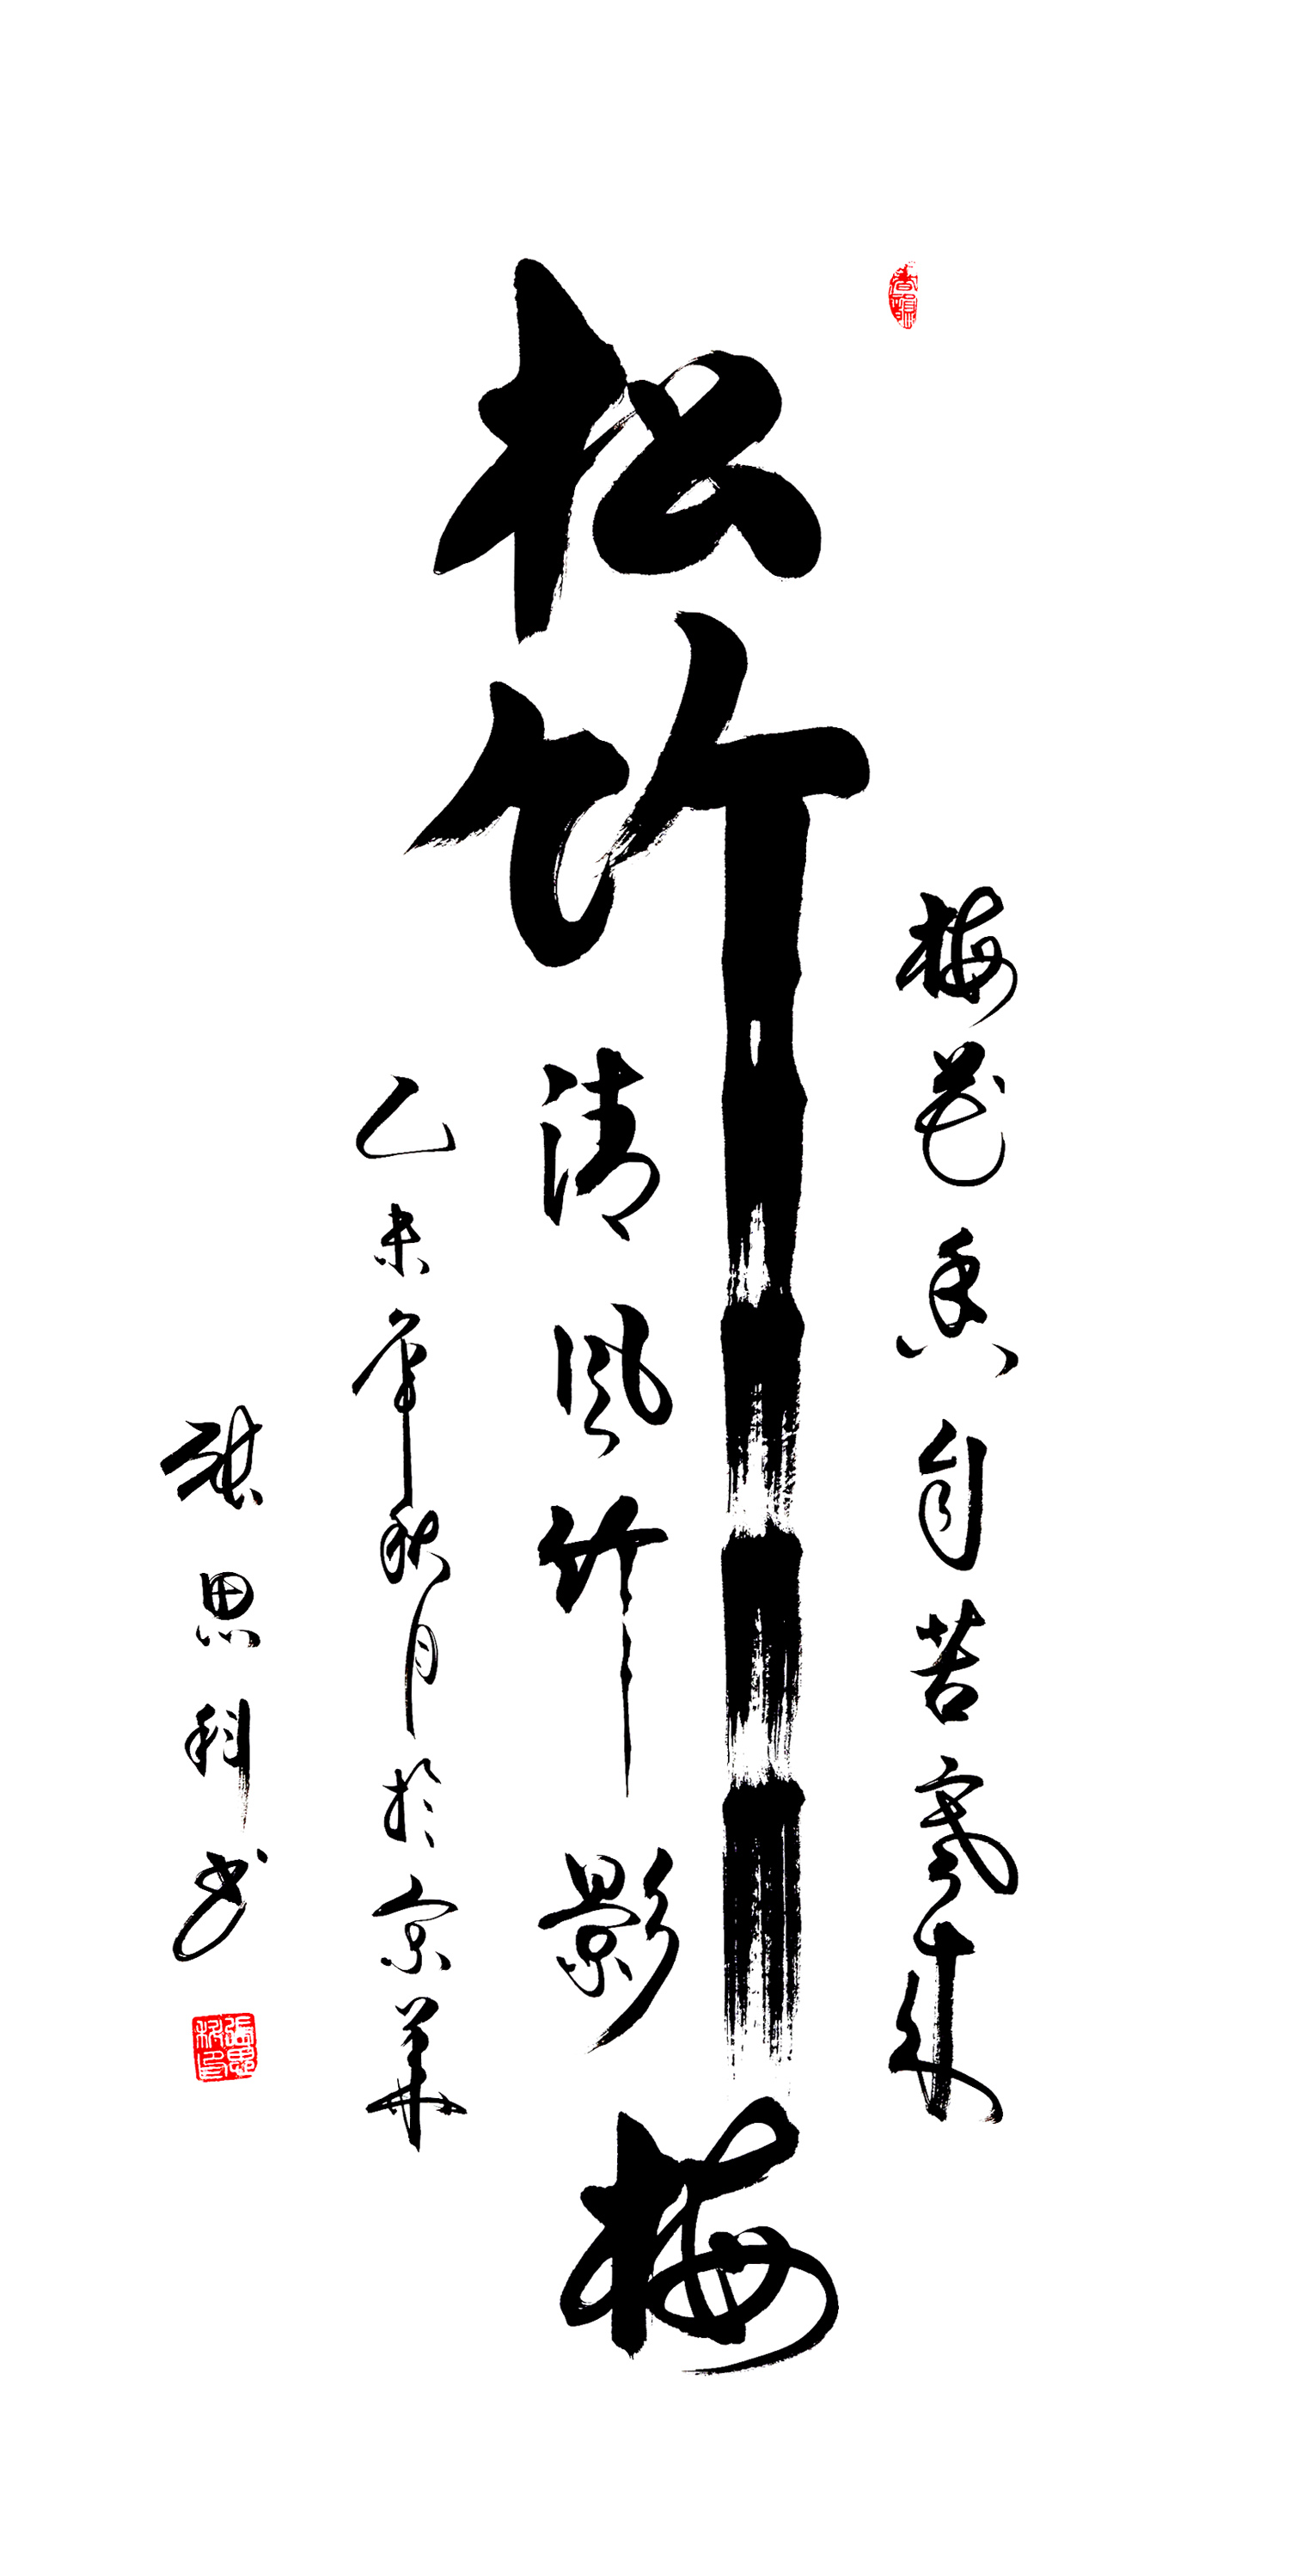 梅花香自苦寒来
松竹梅
清风竹影
乙未年秋月於京華
张思科书
張思科印